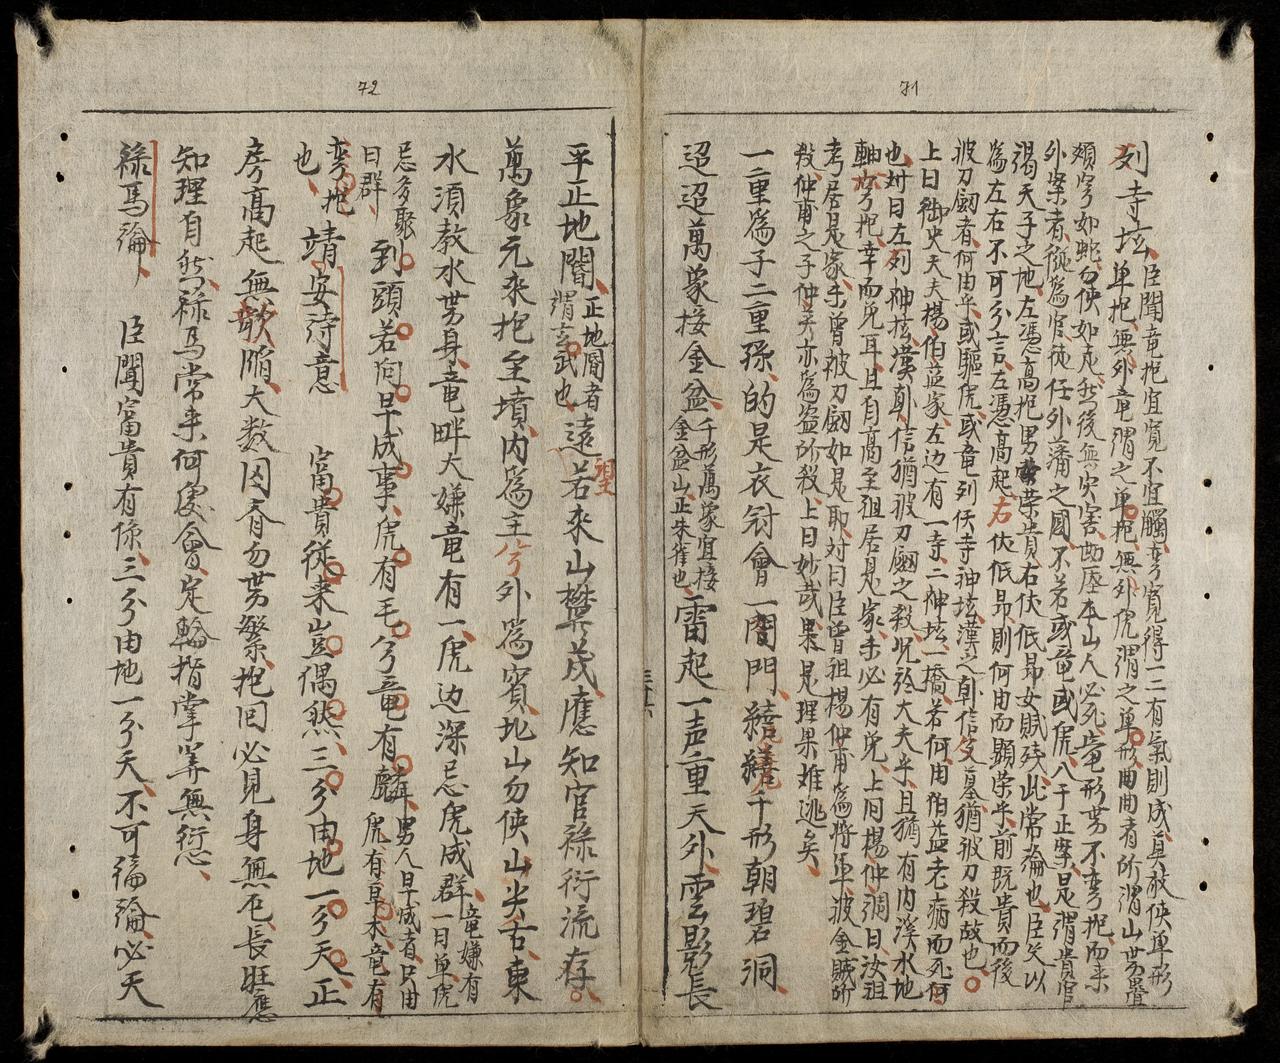 71
列寺坛臣聞竜抱宜寛不宜觸弯寛得一二有氣則成真敌俠单形
单抱無外竜謂之单抱無外虎謂之单形曲曲者所謂山劳疊
頰弯如蛇勾俠如走然後無灾害曲歷本山人必死竜形劳不弯抱而来
外案者徙為官徒任外藩之國不若或竜或虎入于正穿是謂貴官
謁天子之地左馮高抱男榮貴右伏低昂女賊残此常論也臣父以
為左右不可分言左憑高起右伏低昂則何由而顕荣乎前既貴而後
被刀劎者何由乎或驅虎或竜列伏寺神坛漢之朝信父墓猶被刀殺故也
上曰御史大夫楊伯益家左边有一寺二神坛一橋若何由伯益老病而死何
也対曰左列神坛漢朝信猶被刀劎之殺况於大夫乎且猶有内溪水地
軸弯抱辛而免耳且自高至祖居是家未必有免上曰楊仲調曰汝祖
考居是家乎曾被刀劎如是耶対曰臣曾祖楊仲甫為将军被金賊所
殺仲甫之子仲关亦為盗所殺上曰妙哉果是理果难逃矣
一重為子二重孫的是衣冠會一閭門嘻嘻千形朝碧洞
迢迢萬象接金盆千形萬象宜接
金盆山正朱雀也雷起一声二重天外雲影長
72
平正地闇正地闇者
謂玄武也遠望若来山欝茂應知官禄衍流存
萬象元来抱至墳内為主兮外為賓圠山勿俠山尖舌東
水須教水劳身竜畔大嫌竜有一虎边深忌虎成群竜嫌有
一日单虎
忌多聚
曰群到頭若向早成事虎有毛兮竜有麟男人早成者只由
虎有草木竜有
弯抱
也靖安待意富貴徙来豈偶然三分由地一分天正
房高起無欹陷大数因看勿劳繁抱回必見身無厄長旺應
知理自然禄馬常来何處會定輪指掌筭無衍
禄馬論臣聞富貴有缘三分由地一分天不可徧論必天